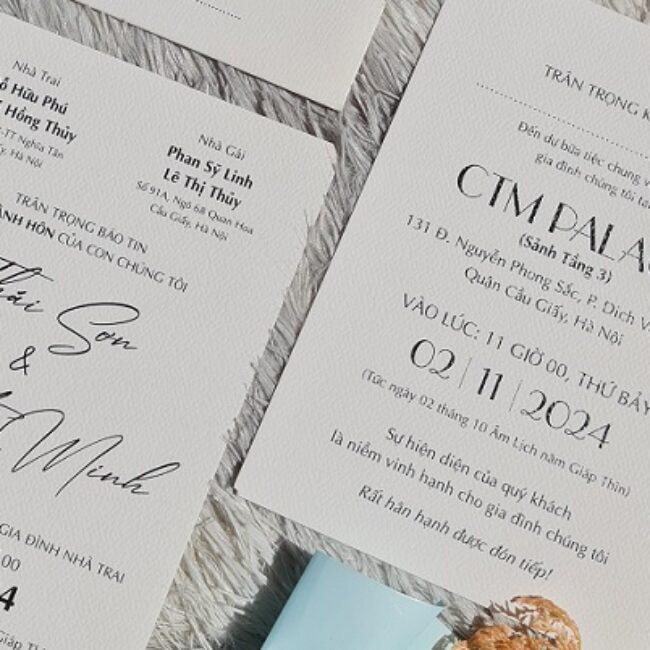 Nhà Trai
Hữu Phú
Hồng Thủy
TT Nghĩa Tân
Hà Nội
Nhà Gái
Phan Sỹ Linh
Lê Thị Thủy
Số 91A, Ngõ 68 Quan Hoa
Cầu Giấy, Hà Nội
TRÂN TRỌNG BÁO TIN
HÔN CỦA CON CHÚNG TÔI
Thái Sơn
&
Minh
GIA ĐÌNH NHÀ TRAI
00
4
Giáp
TRÂN TRỌNG K
Đến dự bữa tiệc chung v
gia đình chúng tôi tạ
CTM PALA
(Sảnh Tầng 3)
131 Đ. Nguyễn Phong Sắc, P. Dịch V
Quận Cầu Giấy, Hà Nội
VÀO LÚC: 11 GIỜ 00, THỨ BẢY
02 | 11 | 2024
(Tức ngày 02 tháng 10 Âm Lịch năm Giáp Thìn)
Sự hiện diện của quý khách
là niềm vinh hạnh cho gia đình chúng tôi
Rất hân hạnh được đón tiếp!